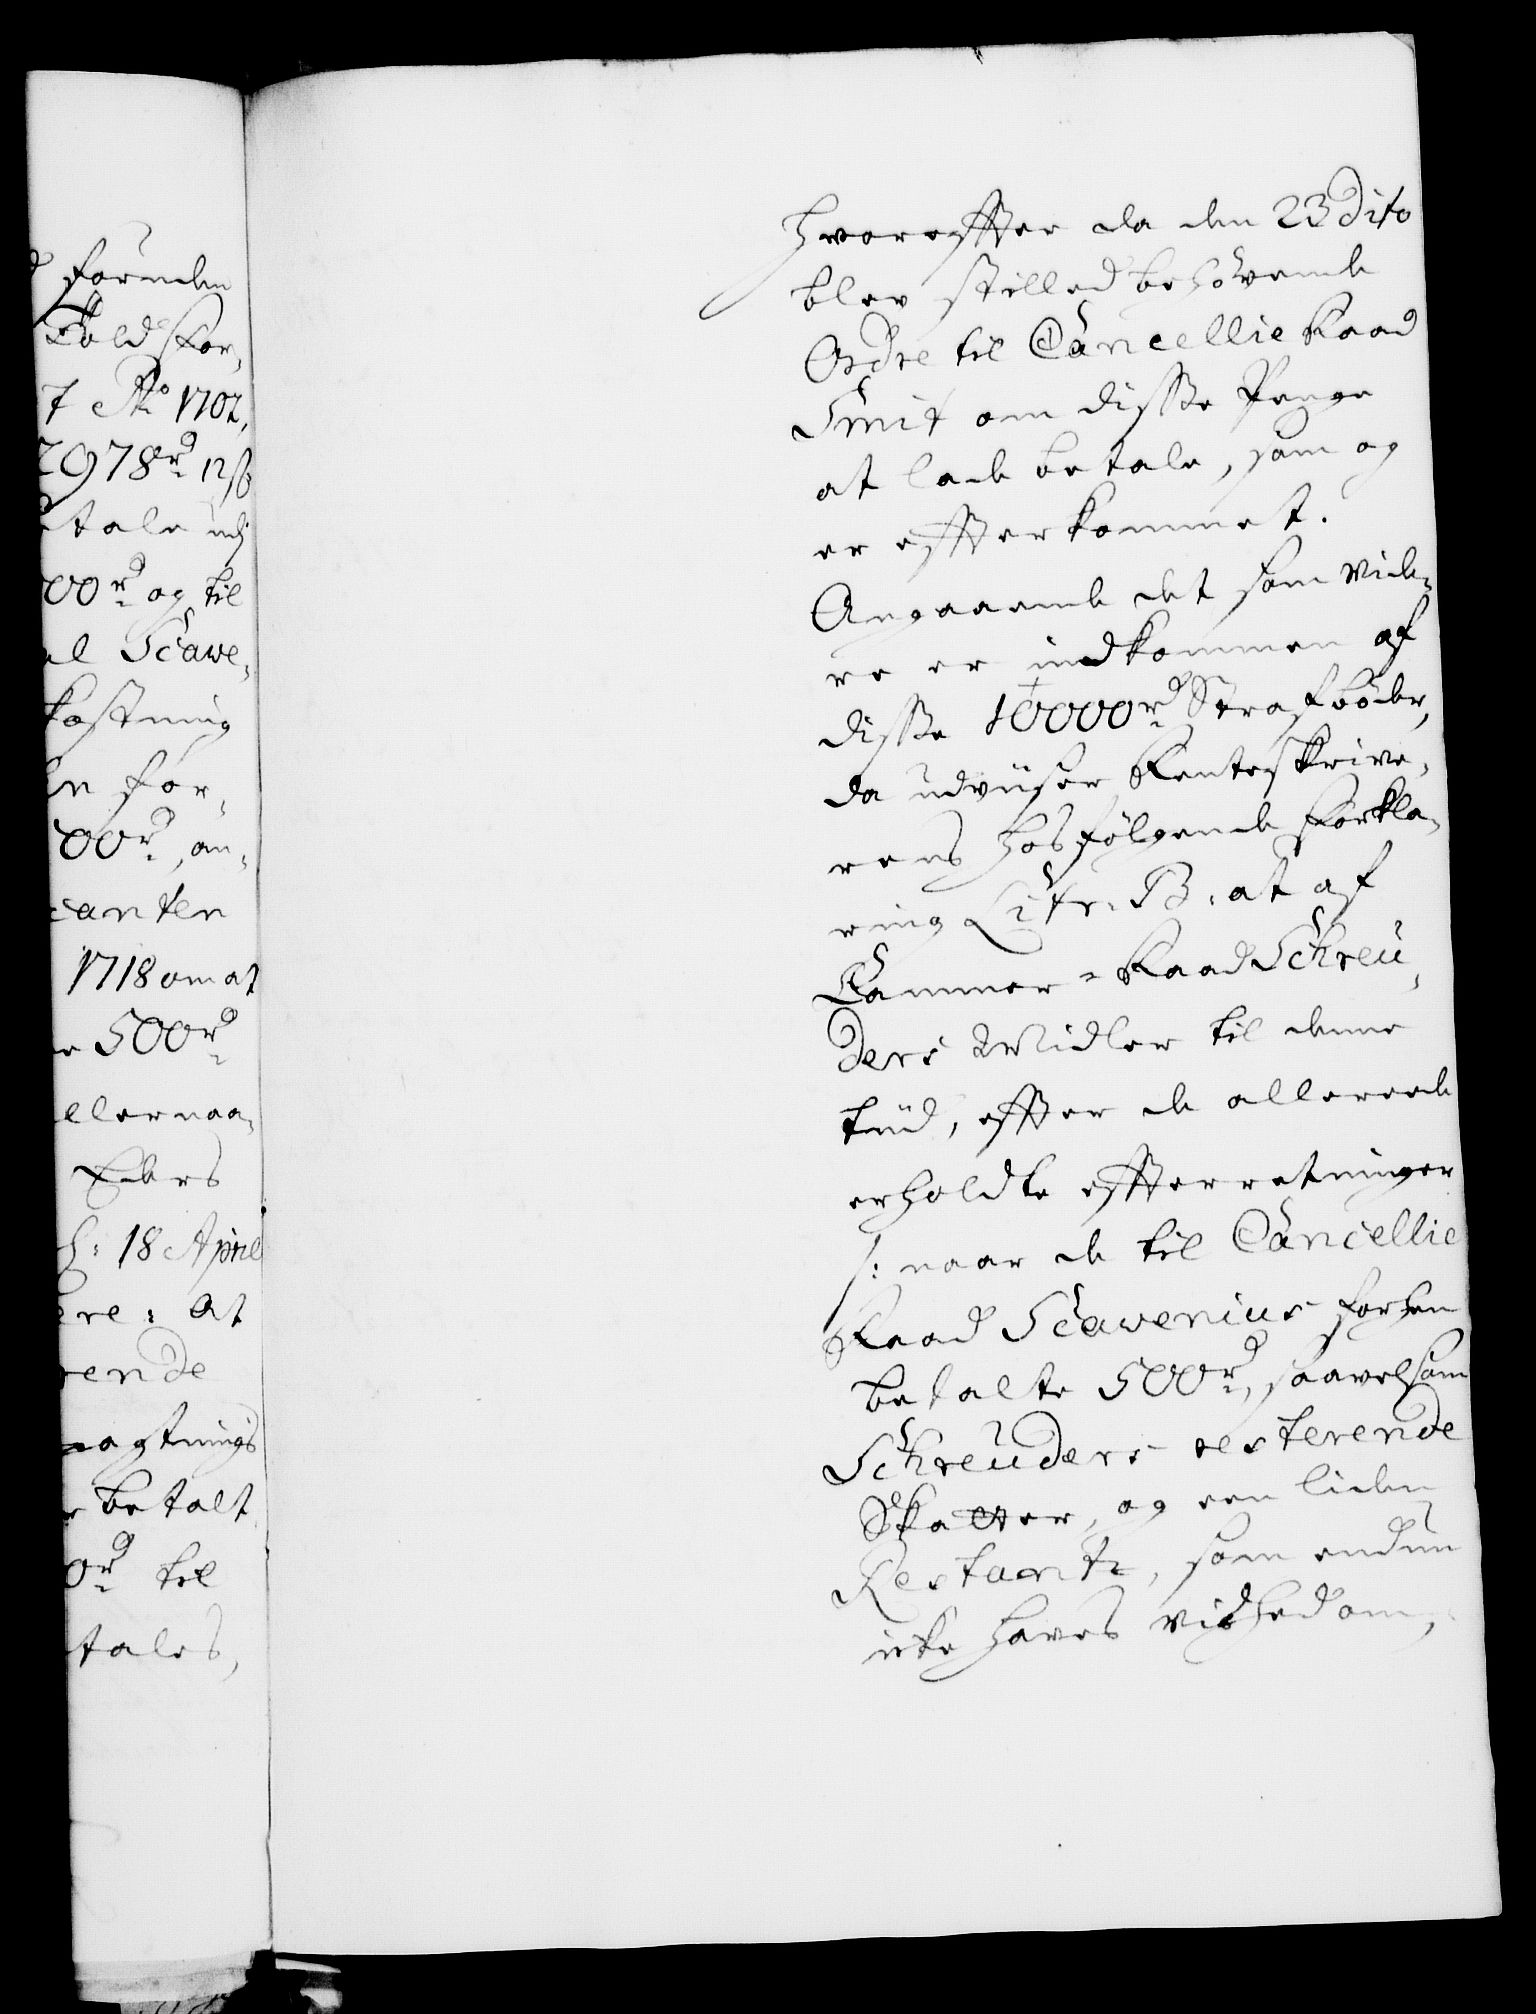 foruden
Told For,
7 Ao 1702,
2978rd 12ß
tale udj
00rd og til
el Scawe,
kostning
en for,
500rd, an,
canten
1718 om at
e 500rd
eller naa,
Ebers
18 April
ere: at
rende
magtnings
r betalt
0rd til
tales,
hvorefter da den 23 Dito
blev stilled behøvende
Ordre til Cancellie Raad
Smit om disse Penge
at lade betale, som og
er efterkommet.
Angaaende det som vide,
re er indkommen af
disse 10000rd Strafbøder,
da udviiser Renteskrive,
rens hosfølgende Forkla,
ring Litr. B. at af
Cammer-Raad Schreu,
ders Midler til denne
tiid, efter de allereede
erholdte efterretninger
/: naar de til Cancellie
Raad Scavenius forhen
betalte 500rd, saavelsom
Schreuders resterende
Skatter, og een liden
Restantz, som endnu
icke haves vished om,